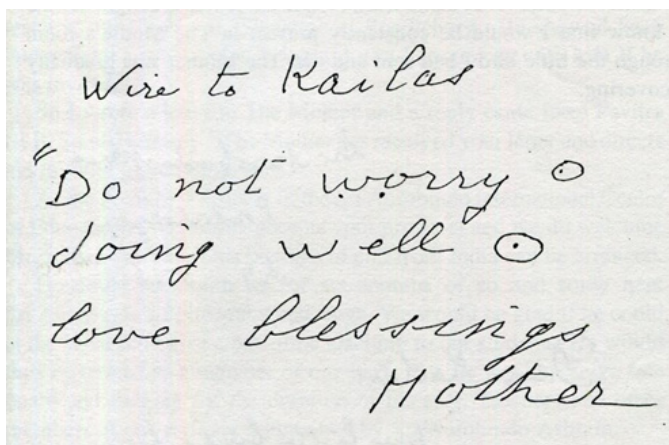 Wire to Kailas
"Do not worry ⊙
doing well ⊙
love blessings
Mother